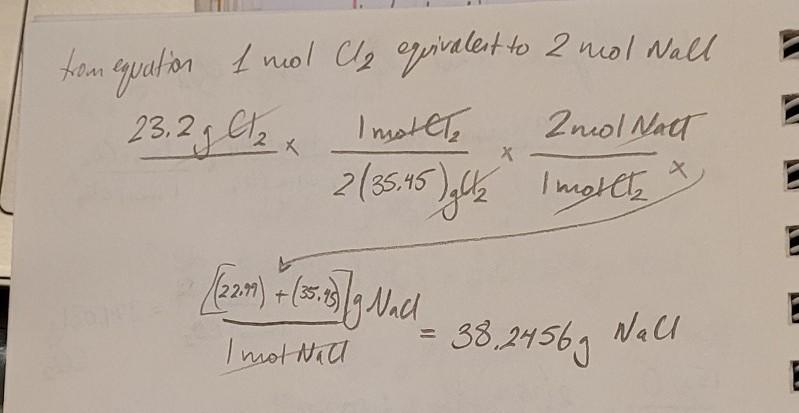 from equation 1 mol Cl2 equivalent to 2 mol NaCl
23.2 g Cl2 x 1 mol Cl2 x 2 mol NaCl x
2(35.45) g Cl2 1 mol Cl2
[(22.99) + (35.45)] g NaCl
1 mol NaCl = 38.2456g NaCl